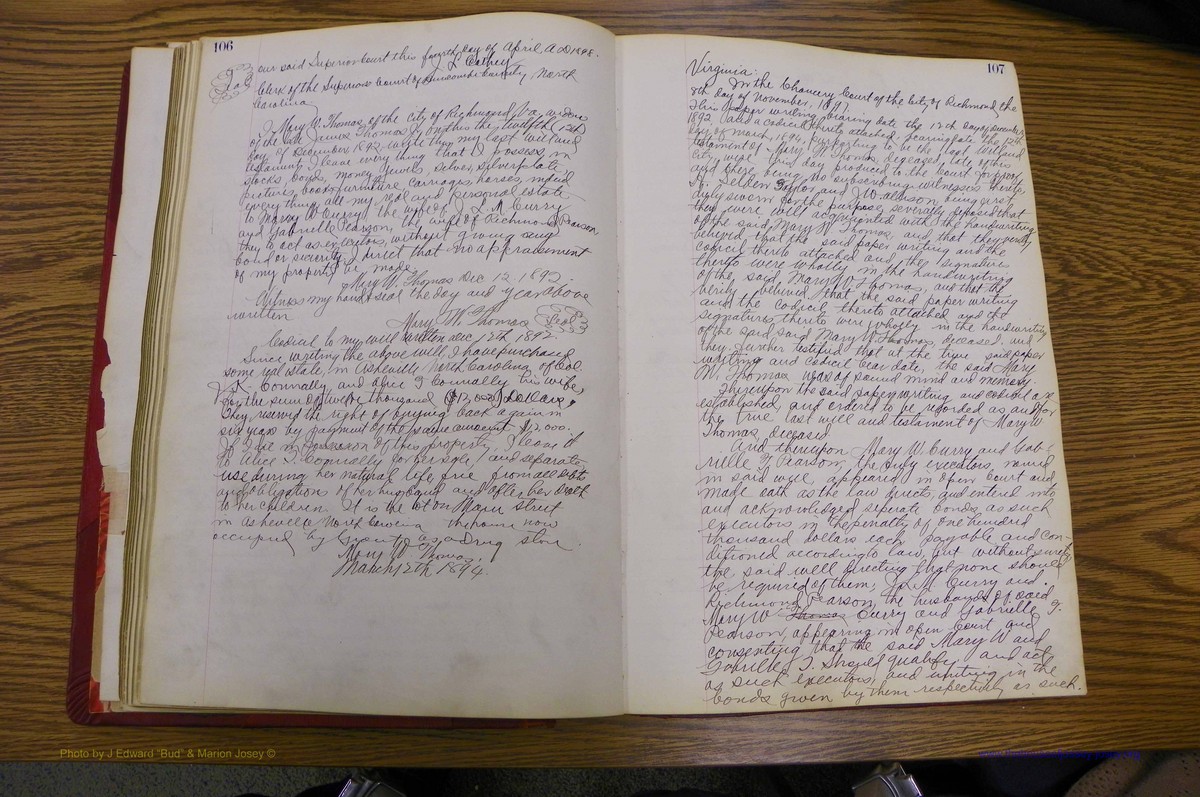 106
our said Superior Court this fourth day of April A.D 1898.
J L Cathey
Clerk of the Superior Court of Buncombe County North
Carolina
I Mary W. Thomas of the city of Richmond, Va, widow
of the late James Thomas Jr on this the twelfth (12th)
day of December 1892 write this my last will and
testament. I leave every thing that I possess, in
stocks, bonds, money, jewels, silver, silverplate
pictures, books, furniture, carriages, horses indeed
everything all my real and personal estate
to Mary W Curry the wife of J. L. M. Curry
and Gabrielle Pearson, the wife of Richmond Pearson
they to act as executors, without giving
bond or security. I direct that no appraisement
of my property be made.
Mary W. Thomas Dec 12. 1892.
Witness my hand & seal the day and year above
written
Mary W. Thomas Seal
Codicil to my will written Dec 12th 1892.
Since writing the above will, I have purchased
some real estate, in Asheville North Carolina of Col
J. K. Connally and Alice T Connally his wife,
for the sum of twelve thousand dollars,
They reserved the right of buying back again in
six years by payment of the same amount $12,000.
If I die in possession of this property, I leave it
to Alice T. Connally for her sole, and separate
use during her natural life free from all debts
and obligations of her husband and after her death
to her children. It is the lot on Main Street
in Asheville North Carolina now
occupied by as a Drug store.
Mary W Thomas
March 12th 1894.
107
Virginia:
In the Chancery Court of the City of Richmond, the
8th day of November, 1897.
This paper writing bearing date the 12th day of December
1892 and a codicil thereto attached, bearing date the 12th
day of March, 1894, purporting to be the last will and
testament of Mary W. Thomas, deceased, late of this
city, were this day produced to the court for proof
and there being no subscribing witnesses thereto
Selden Taylor and J. W. Atkinson, being first
duly sworn for the purpose, severally deposed that
they were well acquainted with the handwriting
of the said Mary W Thomas, and that they verily
believed that the said paper writing and the
codicil thereto attached and the signature
thereto were wholly in the handwriting
of the said Mary W Thomas, and that the
verily believed that the said paper writing
and the codicil thereto attached and the
signatures thereto were wholly in the handwriting
of the said said Mary W. Thomas, deceased. and
they further testified that at the time said paper
writing and codicil bear date, the said Mary
W. Thomas was of sound mind and memory.
Thereupon the said paper writing and codicil are
established, and ordered to be recorded as and for
the true last will and testament of Mary W
Thomas, deceased.
And thereupon Mary W. Curry and Gab-
rielle T Pearson, the only executors, named
in said will, appeared in open Court and
made oath as the law directs, and entered into
and acknowledged seperate bonds, as such
executors in the penalty of one hundred
thousand dollars each, payable and con-
ditioned according to law, but without surety
the said will directing that none should
be required of them; J. L. M. Curry and
Richmond Pearson, the husbands of said
Mary W Thomas Curry and Gabrielle T.
Pearson, appearing in open Court and
consenting that the said Mary W and
Gabrielle T. should qualify and act
as such executors, and uniting in the
bonds given by them respectively as such.
Photo by J Edward "Bud" & Marion Josey ©